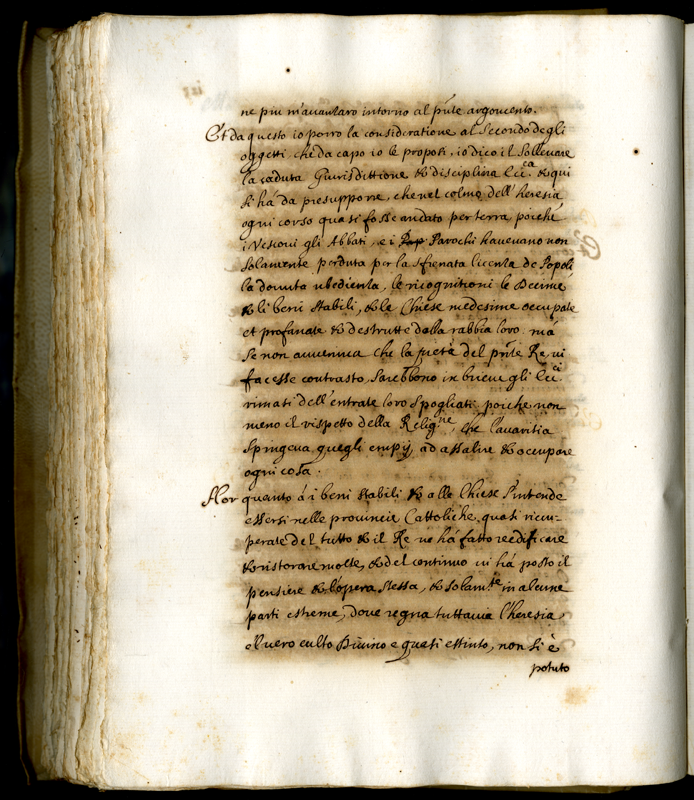 ne piu m'auantaro intorno al pñte argomento.
Et da questo io porro la consideratione al Secondo degli
oggetti, che da capo io le proposi, io dico il Solleuare
la caduta Giurisdittione & disciplina Ecc.ca & qui
si há da presupporre, che nel colmo dell'heresia
ogni corso quasi fosse andato per terra, poiche
i Vescoui gli Abbati, e i Parochi haueuano non
solamente perduta per la sfrenata licenza de Popoli
la douuta ubedienza, le ricognitioni le Decime
& li beni stabili, & le Chiese medesime occupate
et profanate & destrutte dalla rabbia loro: má
se non auueniua che la pietà del pñte Re, ui
facesse contrasto, Sarebbono in brieue gli Ecc.ci
rimasi dell'entrate loro Spogliati, poiche non
meno il rispetto della Relig.ne, che l'auaritia
Spingeua quegli empij, ad assalire & occupare
ogni cosa.
Hor quanto á i beni stabili & alle Chiese s'intende
essersi nelle prouincie Cattoliche, quasi ricu-
perate del tutto & il Re ne há fatto reedificare
& ristorare molte, & del continuo ui há posto il
pensiere & l'opera stessa, & solam.te in alcune
parti estreme, doue regna tuttauia l'heresia,
e'l uero culto Diuino e quasi estinto, non si è
potuto